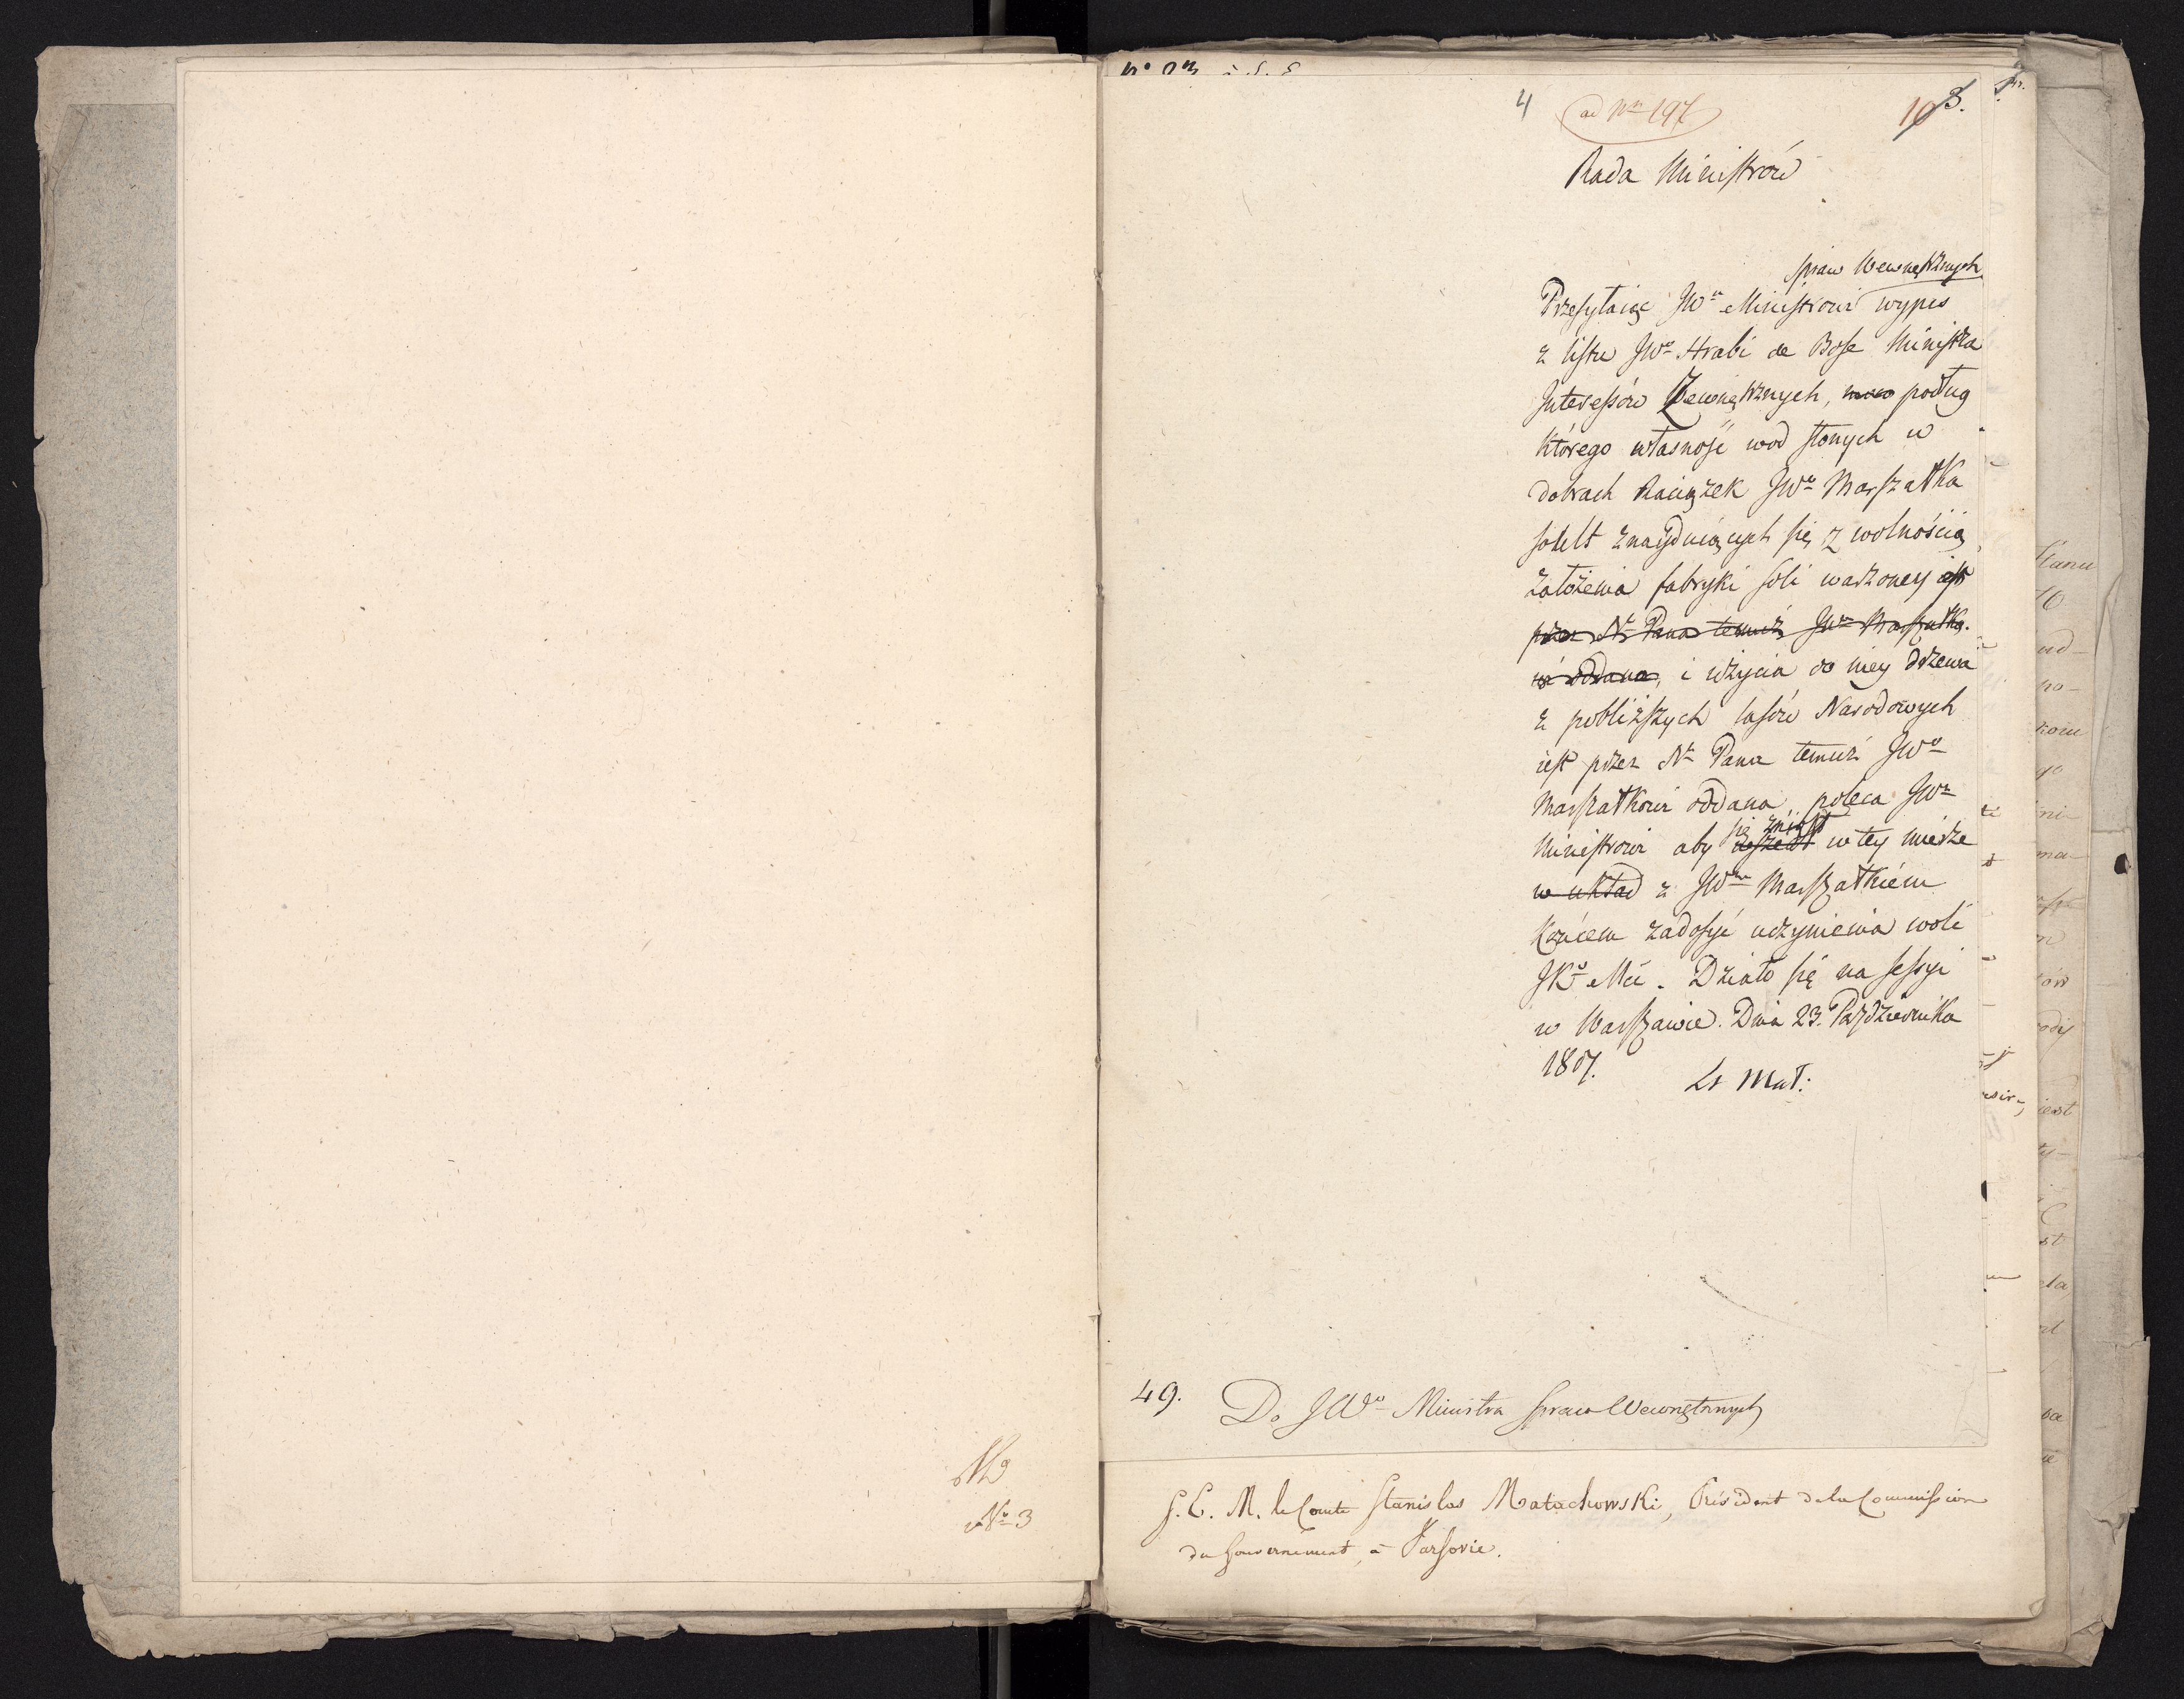 4 ad Nrn 197 108.
Rada Ministrów
Spraw Wewnętrznych
Przesyłaiąc JWu Ministrowi wypis
z listu JWo Hrabi de Bose Ministra
Interessów Zewnętrznych, podług
którego własność wod słonych w
dobrach Raciążek JWo Marszałka
znayduiących się z wolnością
założenia fabryki soli warzoney iest
przez Nn Pana temuż JWu Marszałko.
wi oddana, i użycia do niey drzewa
z pobliższych lasów Narodowych
iest przez Nn Pana temuż JWu
Marszałkowi oddana, poleca JWu
się zniosł
Ministrowi aby wszedł w tey mierze
w układ z JWm Marszałkiem
końcem zadosyć uczynienia woli
JKo Mci. Działo się na sessyi
w Warszawie. Dnia 23. Października
1807.
Ls Mał:
49. Do JWo Ministra Spraw Wewnętrznych
S. E. M. le Comte Stanislas Małachowski, Président de la Commission
du Gouvernement, à Varsovie.
No 3